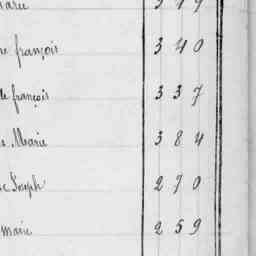 arie 3 4 9
re françois 3 4 0
de françois 3 3 7
e Marie 3 8 4
c Joseph 2 9 0
maire 2 5 9